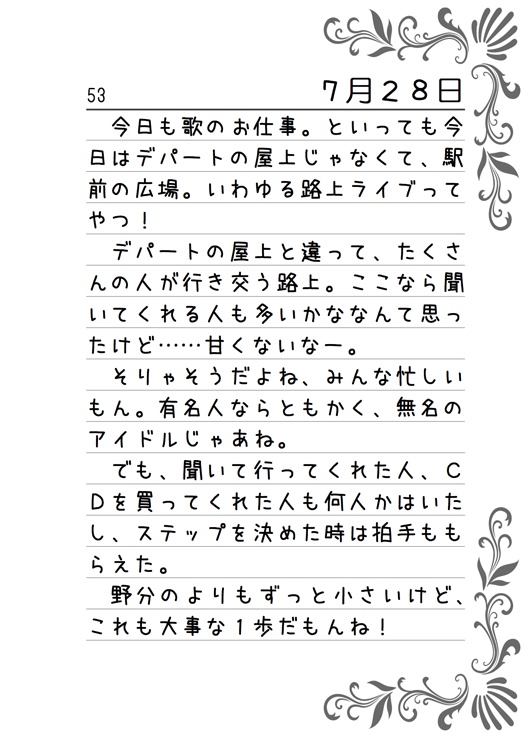 53
7月28日
今日も歌のお仕事。といっても今
日はデパートの屋上じゃなくて、駅
前の広場。いわゆる路上ライブって
やつ！
デパートの屋上と違って、たくさ
んの人が行き交う路上。ここなら聞
いてくれる人も多いかななんて思っ
たけど……甘くないなー。
そりゃそうだよね、みんな忙しい
もん。有名人ならともかく、無名の
アイドルじゃあね。
でも、聞いて行ってくれた人、C
Dを買ってくれた人も何人かはいた
し、ステップを決めた時は拍手もも
らえた。
野分のよりもずっと小さいけど、
これも大事な1歩だもんね！